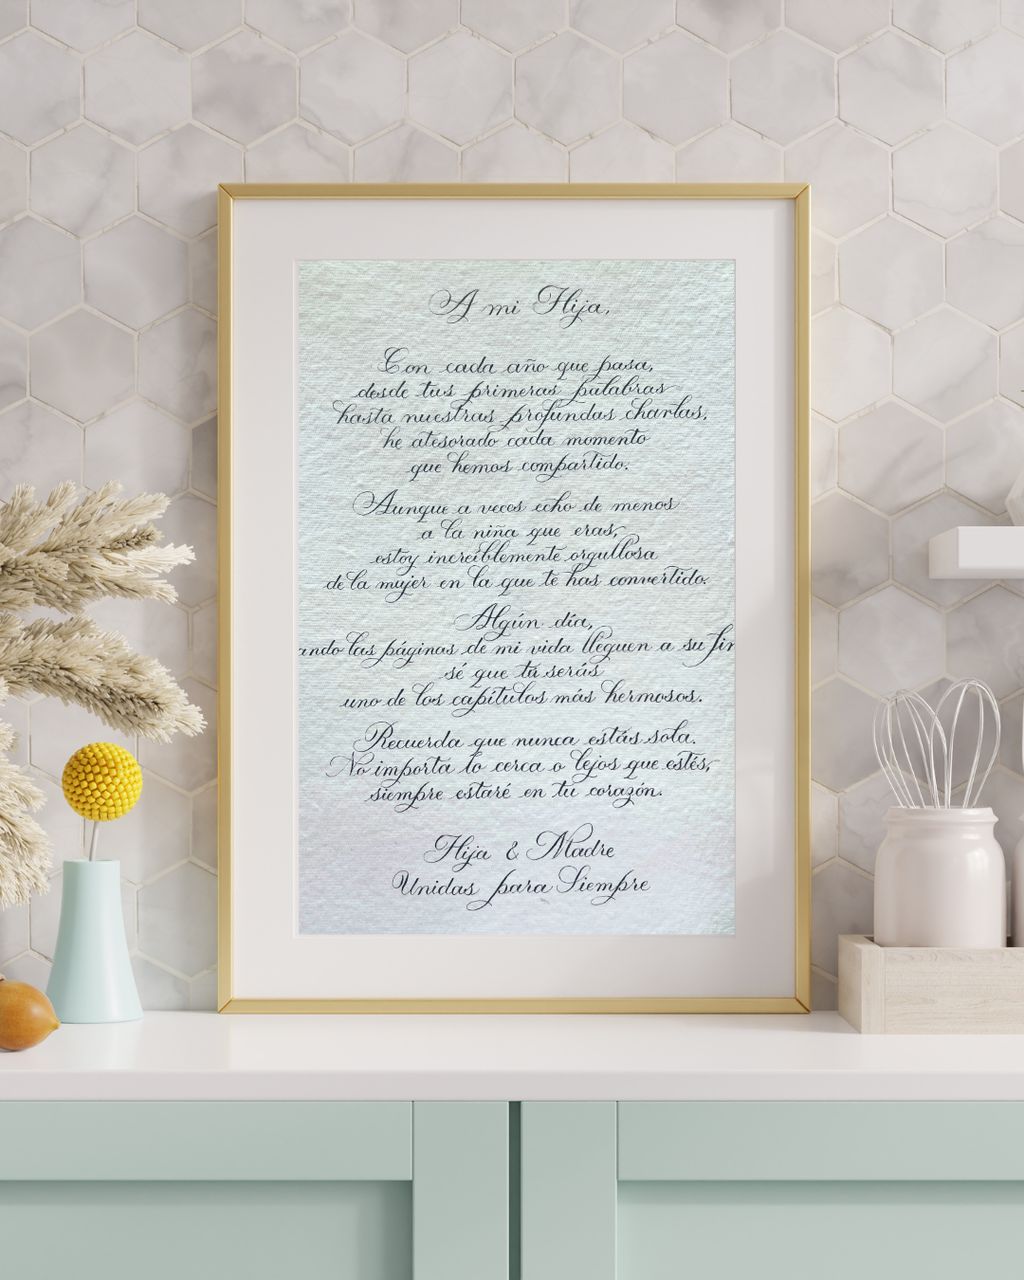 A mi Hija,
Con cada año que pasa,
desde tus primeras palabras
hasta nuestras profundas charlas,
he atesorado cada momento
que hemos compartido.
Aunque a veces echo de menos
a la niña que eras,
estoy increíblemente orgullosa
de la mujer en la que te has convertido.
Algún día,
ando las páginas de mi vida lleguen a su fin
sé que tú serás
uno de los capítulos más hermosos.
Recuerda que nunca estás sola.
No importa lo cerca o lejos que estés,
siempre estaré en tu corazón.
Hija & Madre
Unidas para Siempre